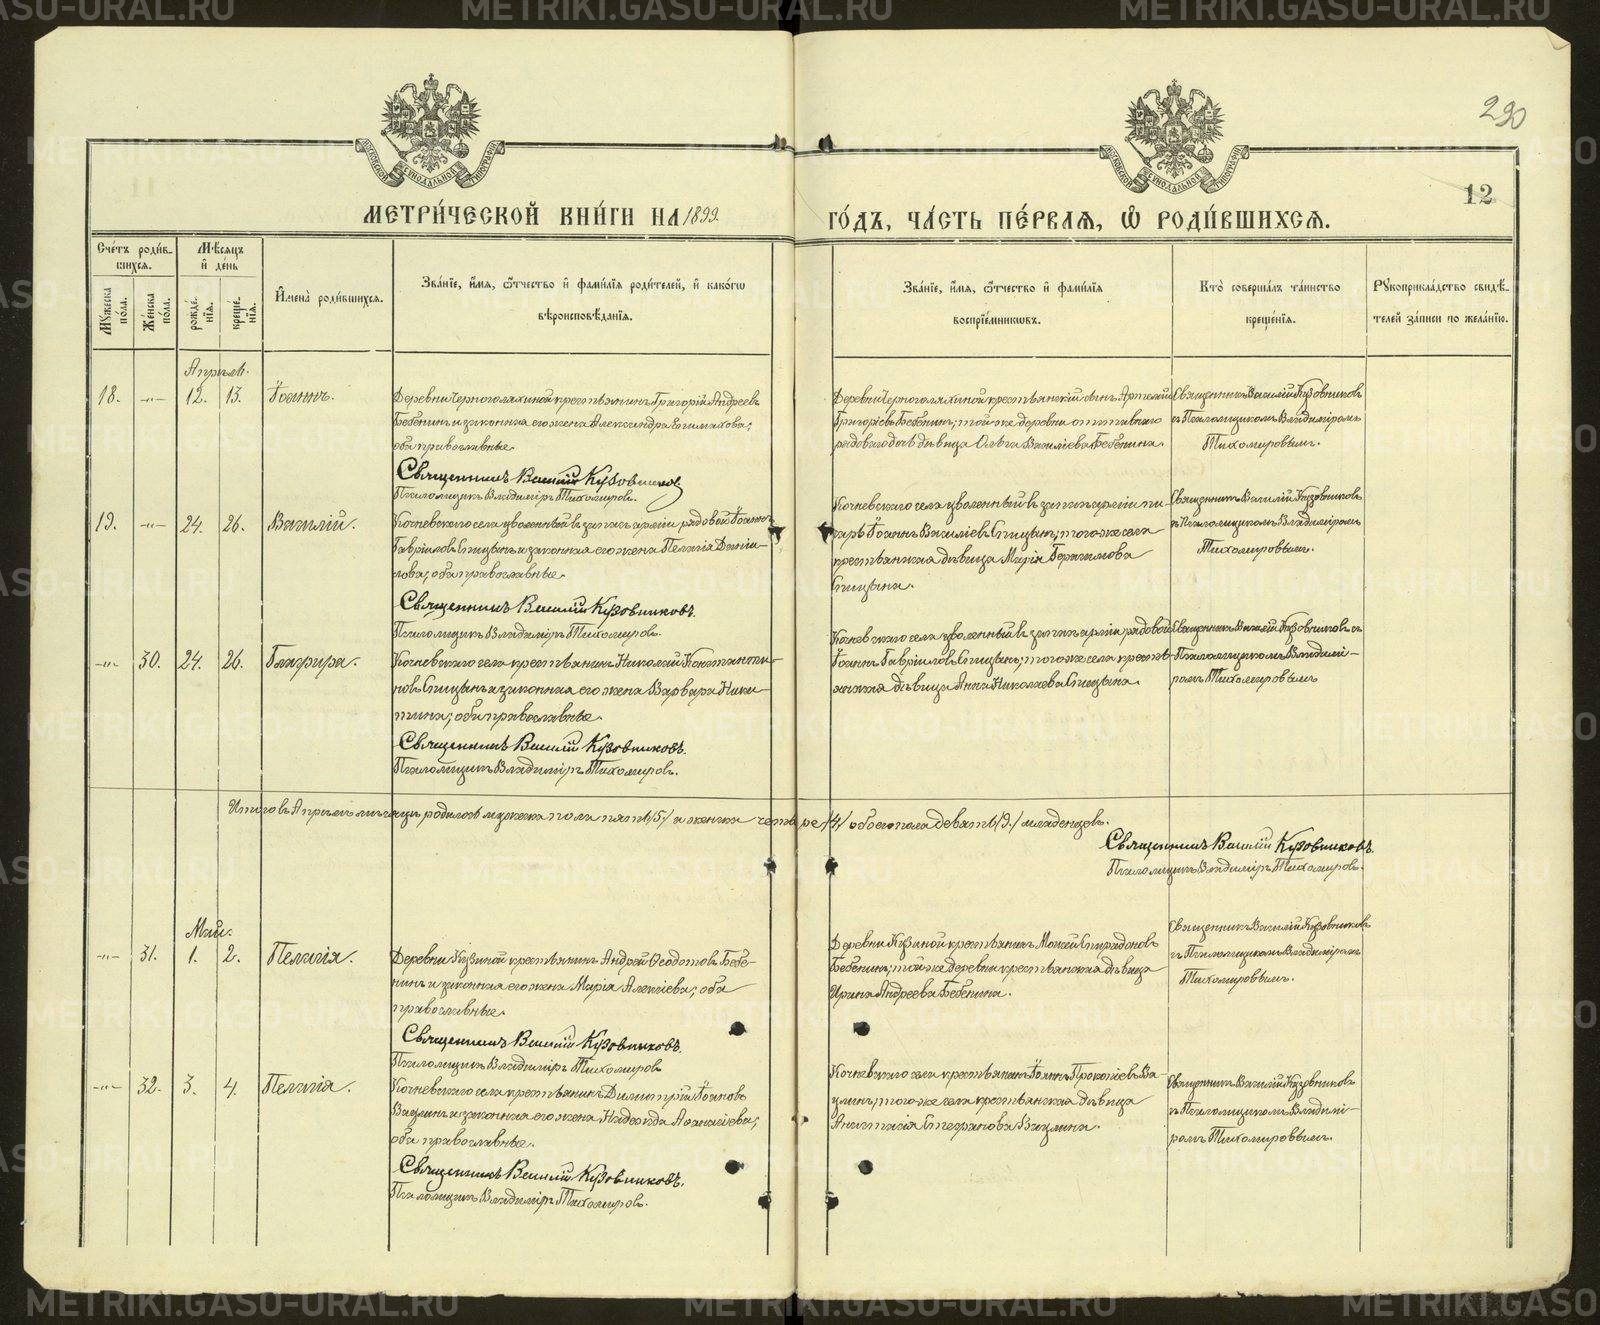 290
12
МЕТРИ́ЧЕСКОЙ КНИ́ГИ НА 1899.
ГО́ДЪ, ЧА́СТЬ ПЕ́РВАЯ, Ѡ РОДИ́ВШИХСЯ.
Сче́тъ роди́вшихся.
Мѣ́сяцъ и де́нь
Мꙋ́жеска по́ла.
Же́нска по́ла.
рожде́нїѧ.
креще́нїѧ.
И҆мена̀ роди́вшихсѧ.
Зва́нїе, и҆́мѧ, ѻ҆́тчество и҆ фами́лїѧ роди́телей, и҆ како́гѡ
вѣроисповѣ́данїѧ.
Зва́нїе, и҆́мѧ, ѻ҆́тчество и҆ фами́лїѧ
воспрїе́мникѡвъ.
Кто̀ соверша́лъ та́инство
креще́нїѧ.
Рꙋкоприкла́дство свидѣ́-
телей за́писи по жела́нїю.
Апрѣль.
18. -„- 12. 13. Іоаннъ.
Деревни Черноголяхиной крестьянинъ Григорій Андреевъ
Бебенинъ и законная его жена Александра
оба православные.
Священникъ Василій Кузовниковъ
Псаломщикъ Владиміръ Тихомировъ.
Деревни Черноголяхиной крестьянскій сынъ Артемій
Григорьевъ Бебенинъ; той же деревни отставнаго
рядоваго дочь дѣвица Ольга Васильева Бебенина.
Священникъ Василій Кузовниковъ
съ Псаломщикомъ Владиміромъ
Тихомировымъ.
19. -„- 24. 26. Василій.
Кочневскаго села уволенный въ запасъ арміи рядовой Іоаннъ
Гавриловъ Спицынъ и законная его жена Пелагія Даніи-
лова; оба православные.
Священникъ Василій Кузовниковъ.
Псаломщикъ Владиміръ Тихомировъ.
Кочневскаго села уволенный въ запасъ арміи пи-
сарь Іоаннъ Василіевъ Спицынъ; того же села
крестьянская дѣвица Марія Герасимова
Спицына.
Священникъ Василій Кузовниковъ
съ Псаломщикомъ Владиміромъ
Тихомировымъ.
-„- 30. 24. 26. Глафира.
Кочневскаго села крестьянинъ Николай Константи-
новъ Спицынъ и законная его жена Варвара Ники-
тина; оба православные.
Священникъ Василій Кузовниковъ.
Псаломщикъ Владиміръ Тихомировъ.
Кочневскаго села уволенный въ запасъ арміи рядовой
Іоаннъ Гавриловъ Спицынъ; того же села крестья-
нская дѣвица Анна Николаева Спицына.
Священникъ Василій Кузовниковъ съ
Псаломщикомъ Владимі-
ромъ Тихомировымъ
Итого въ Апрѣлѣ мѣсяцѣ родилось мужеска пола пять /5/ а женска четыре /4/ обоего пола девять /9/ младенцевъ.
Священникъ Василій Кузовниковъ.
Псаломщикъ Владиміръ Тихомировъ.
Май.
-„- 31. 1. 2. Пелагія.
Деревни Кузиной крестьянинъ Андрей Ѳеодотовъ Бебе-
нинъ и законная его жена Марія Алексіева; оба
православные.
Священникъ Василій Кузовниковъ.
Псаломщикъ Владиміръ Тихомировъ
Деревни Кузиной крестьянинъ Моисей Спиридоновъ
Бебенинъ; той же деревни крестьянская дѣвица
Ирина Андреева Бебенина.
Священникъ Василій Кузовниковъ
съ Псаломщикомъ Владиміромъ
Тихомировымъ.
-„- 32. 3. 4. Пелагія.
Кочневскаго села крестьянинъ Димитрій Іоановъ
и законная его жена Надежда Аѳанасіева;
оба православные.
Священникъ Василій Кузовниковъ.
Псаломщикъ Владиміръ Тихомировъ.
Кочневскаго села крестьянинъ Іоаннъ Прокопіевъ
того же села крестьянская дѣвица
Анастасія Стефанова
Священникъ Василій Кузовниковъ
съ Псаломщикомъ Владимі-
ромъ Тихомировымъ.
METRIKI.GASO-URAL.RU